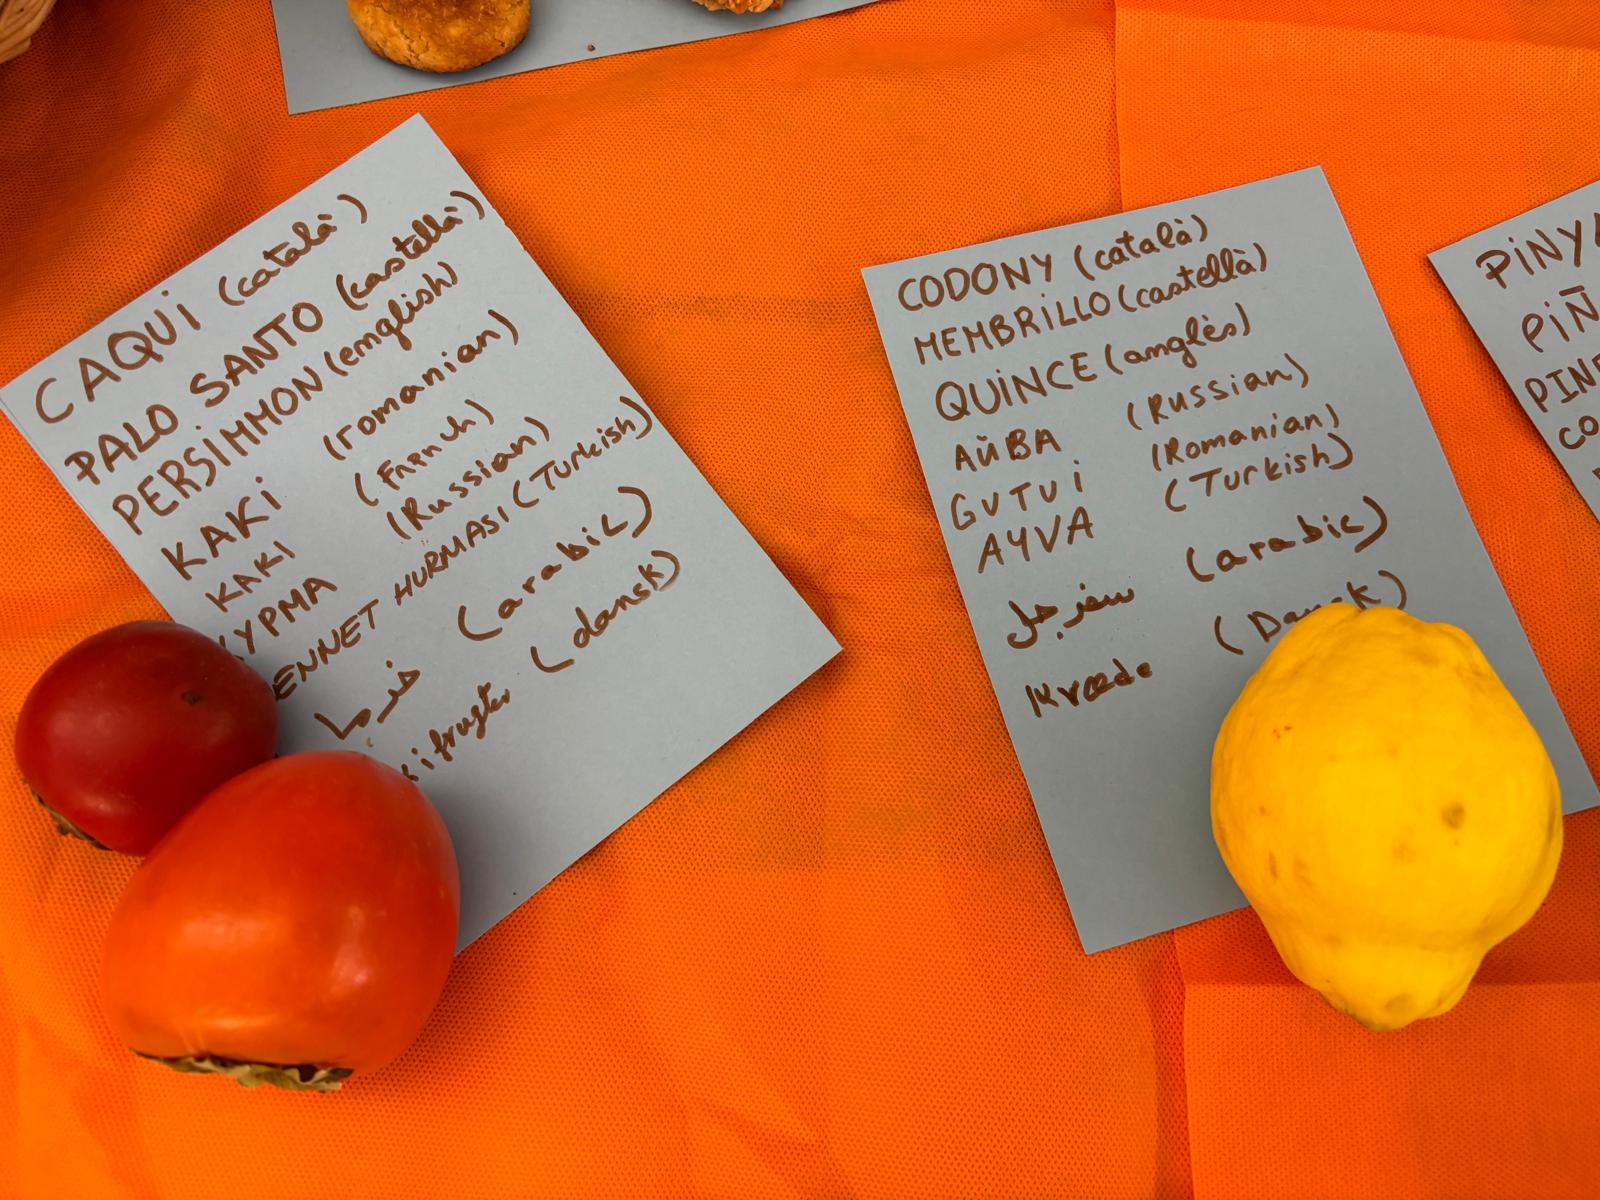 CAQUI (català)
PALO SANTO (castellà)
PERSIMMON (english)
KAKI (romanian)
KAKI (French)
YPMA (Russian)
ENNET HURMASI (Turkish)
خرما (arabic)
ifrugter (dansk)
CODONY (català)
MEMBRILLO (castellà)
QUINCE (anglès)
АЙВА (Russian)
GUTUI (Romanian)
AYVA (Turkish)
سفرجل (arabic)
Kvæde (Dansk)
PINY
PIÑ
PINE
CO